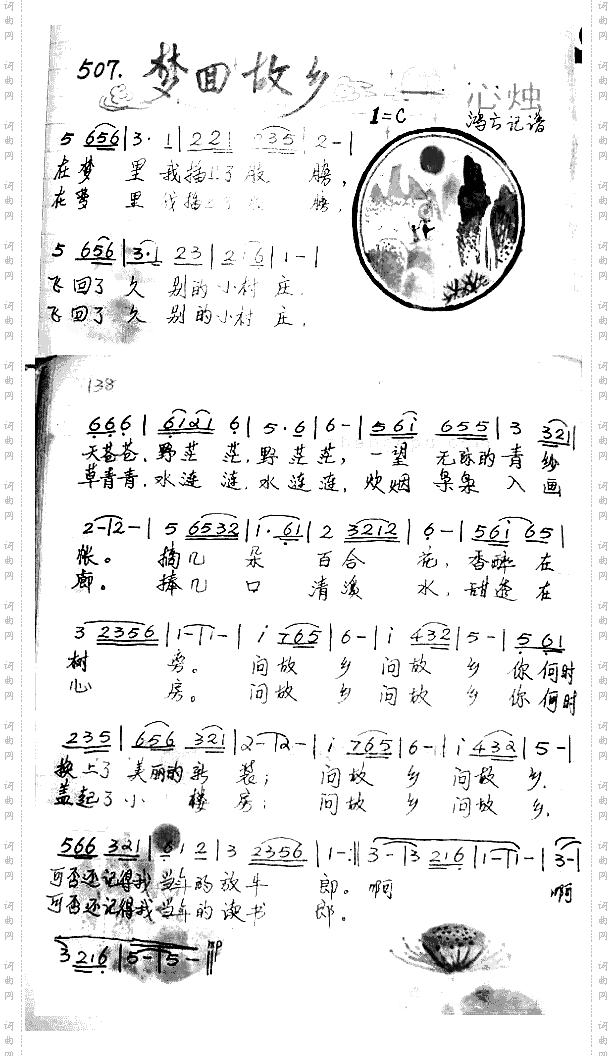 507. 梦回故乡 — 心烛
1=C 鸿云记谱
5 656|3· 1|221 235|2-|
在梦 里 我插上了 膀,
在梦 里 我插 膀,
5 656|3·1 23|2·6|1-|
飞回了 久 别的小村 庄.
飞回了 久 别的小村 庄.
138
666|6121 6|5·6|6-|561 655|3 321|
天苍苍,野茫 茫,野茫茫,一望 无际的青纱
草青青,水涟 涟,水涟涟,炊烟 袅袅 入 画
2-|2-|5 6532|1·61|2 3212|6-|561 65|
帐。 摘几 朵 百合 花,香醉 在
廊。 捧几 口 清溪 水,甜透 在
3 2356|1-|1-|i 765|6-|i 432|5-|5 61|
树 旁。 问故 乡 问故 乡 你 何时
心 房。 问故 乡 问故 乡 你 何时
235|656 321|2-|2-|i 765|6-|i 432|5-|
换上了 美丽的新 装; 问故 乡 问故 乡.
盖起了小 楼 房; 问故 乡 问故 乡,
566 321|61 2|3 2356|1-:||3-|3 216|1-|1-|3-|
可否还记得我 当年的放牛 郎。 啊 啊
可否还记得我当年的读书 郎。
3 216|5-|5-|||
词曲网